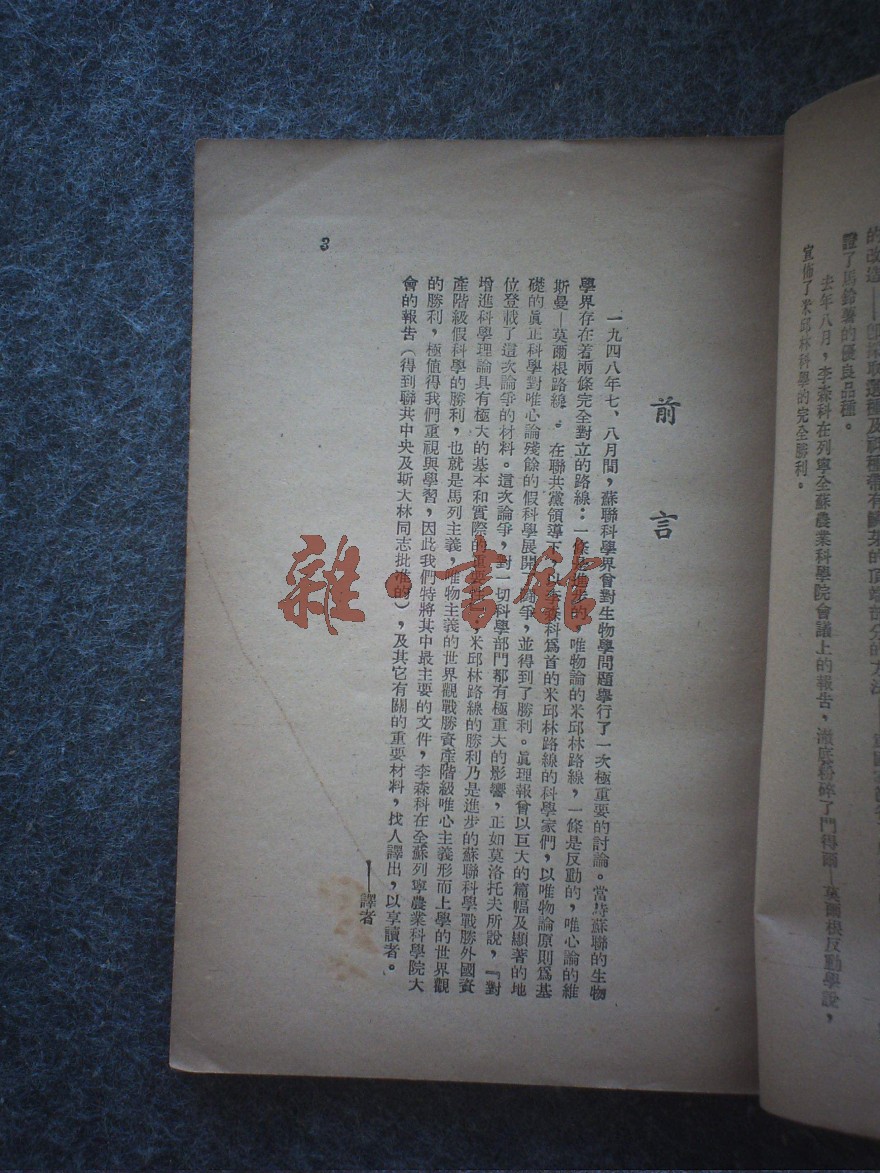 的改造
證了馬鈴薯的優良品種。
去年八月，李森科在列寧全蘇農業科學院會議上的報告，澈底粉碎了門得爾—莫爾根反動學說，
宣佈了米邱林科學的完全勝利。
前言
一九四八年七、八月間，蘇聯科學界曾對生物學問題舉行了一次極重要的討論。當時蘇聯的生物
學界存在着兩條完全對立的路線：一條是進步的，唯物論的米邱林路線，一條是反動的，唯心論的維
斯曼—莫爾根路線。在聯共黨領導下，以李森科為首的米邱林路線的科學家們，以唯物論原則為基
礎的真正科學對唯心論殘餘的假科學展開了論爭，並得到了勝利。真理報曾以巨大的篇幅及顯著的地
位登載了這次論爭的材料。這次論爭，對一切科學部門都有極重大的影響，正如莫洛托夫所說，『對
增進科學理論具有極大的基本和實際的重要性』，米邱林路線的勝利乃是進步的蘇聯科學戰勝外國資
產階級假科學的勝利，也就是馬列主義，唯物主義的世界觀戰勝資產階級唯心主義形而上學的世界觀
的勝利，極值得我們重視與學習，因此我們特將其中最主要的文件，李森科在全蘇列寧農業科學院大
會的報告（得到聯共中央及斯大林同志批准的），及其它有關的重要材料，找人譯出，以享讀者。
——譯者
3
雜·書館